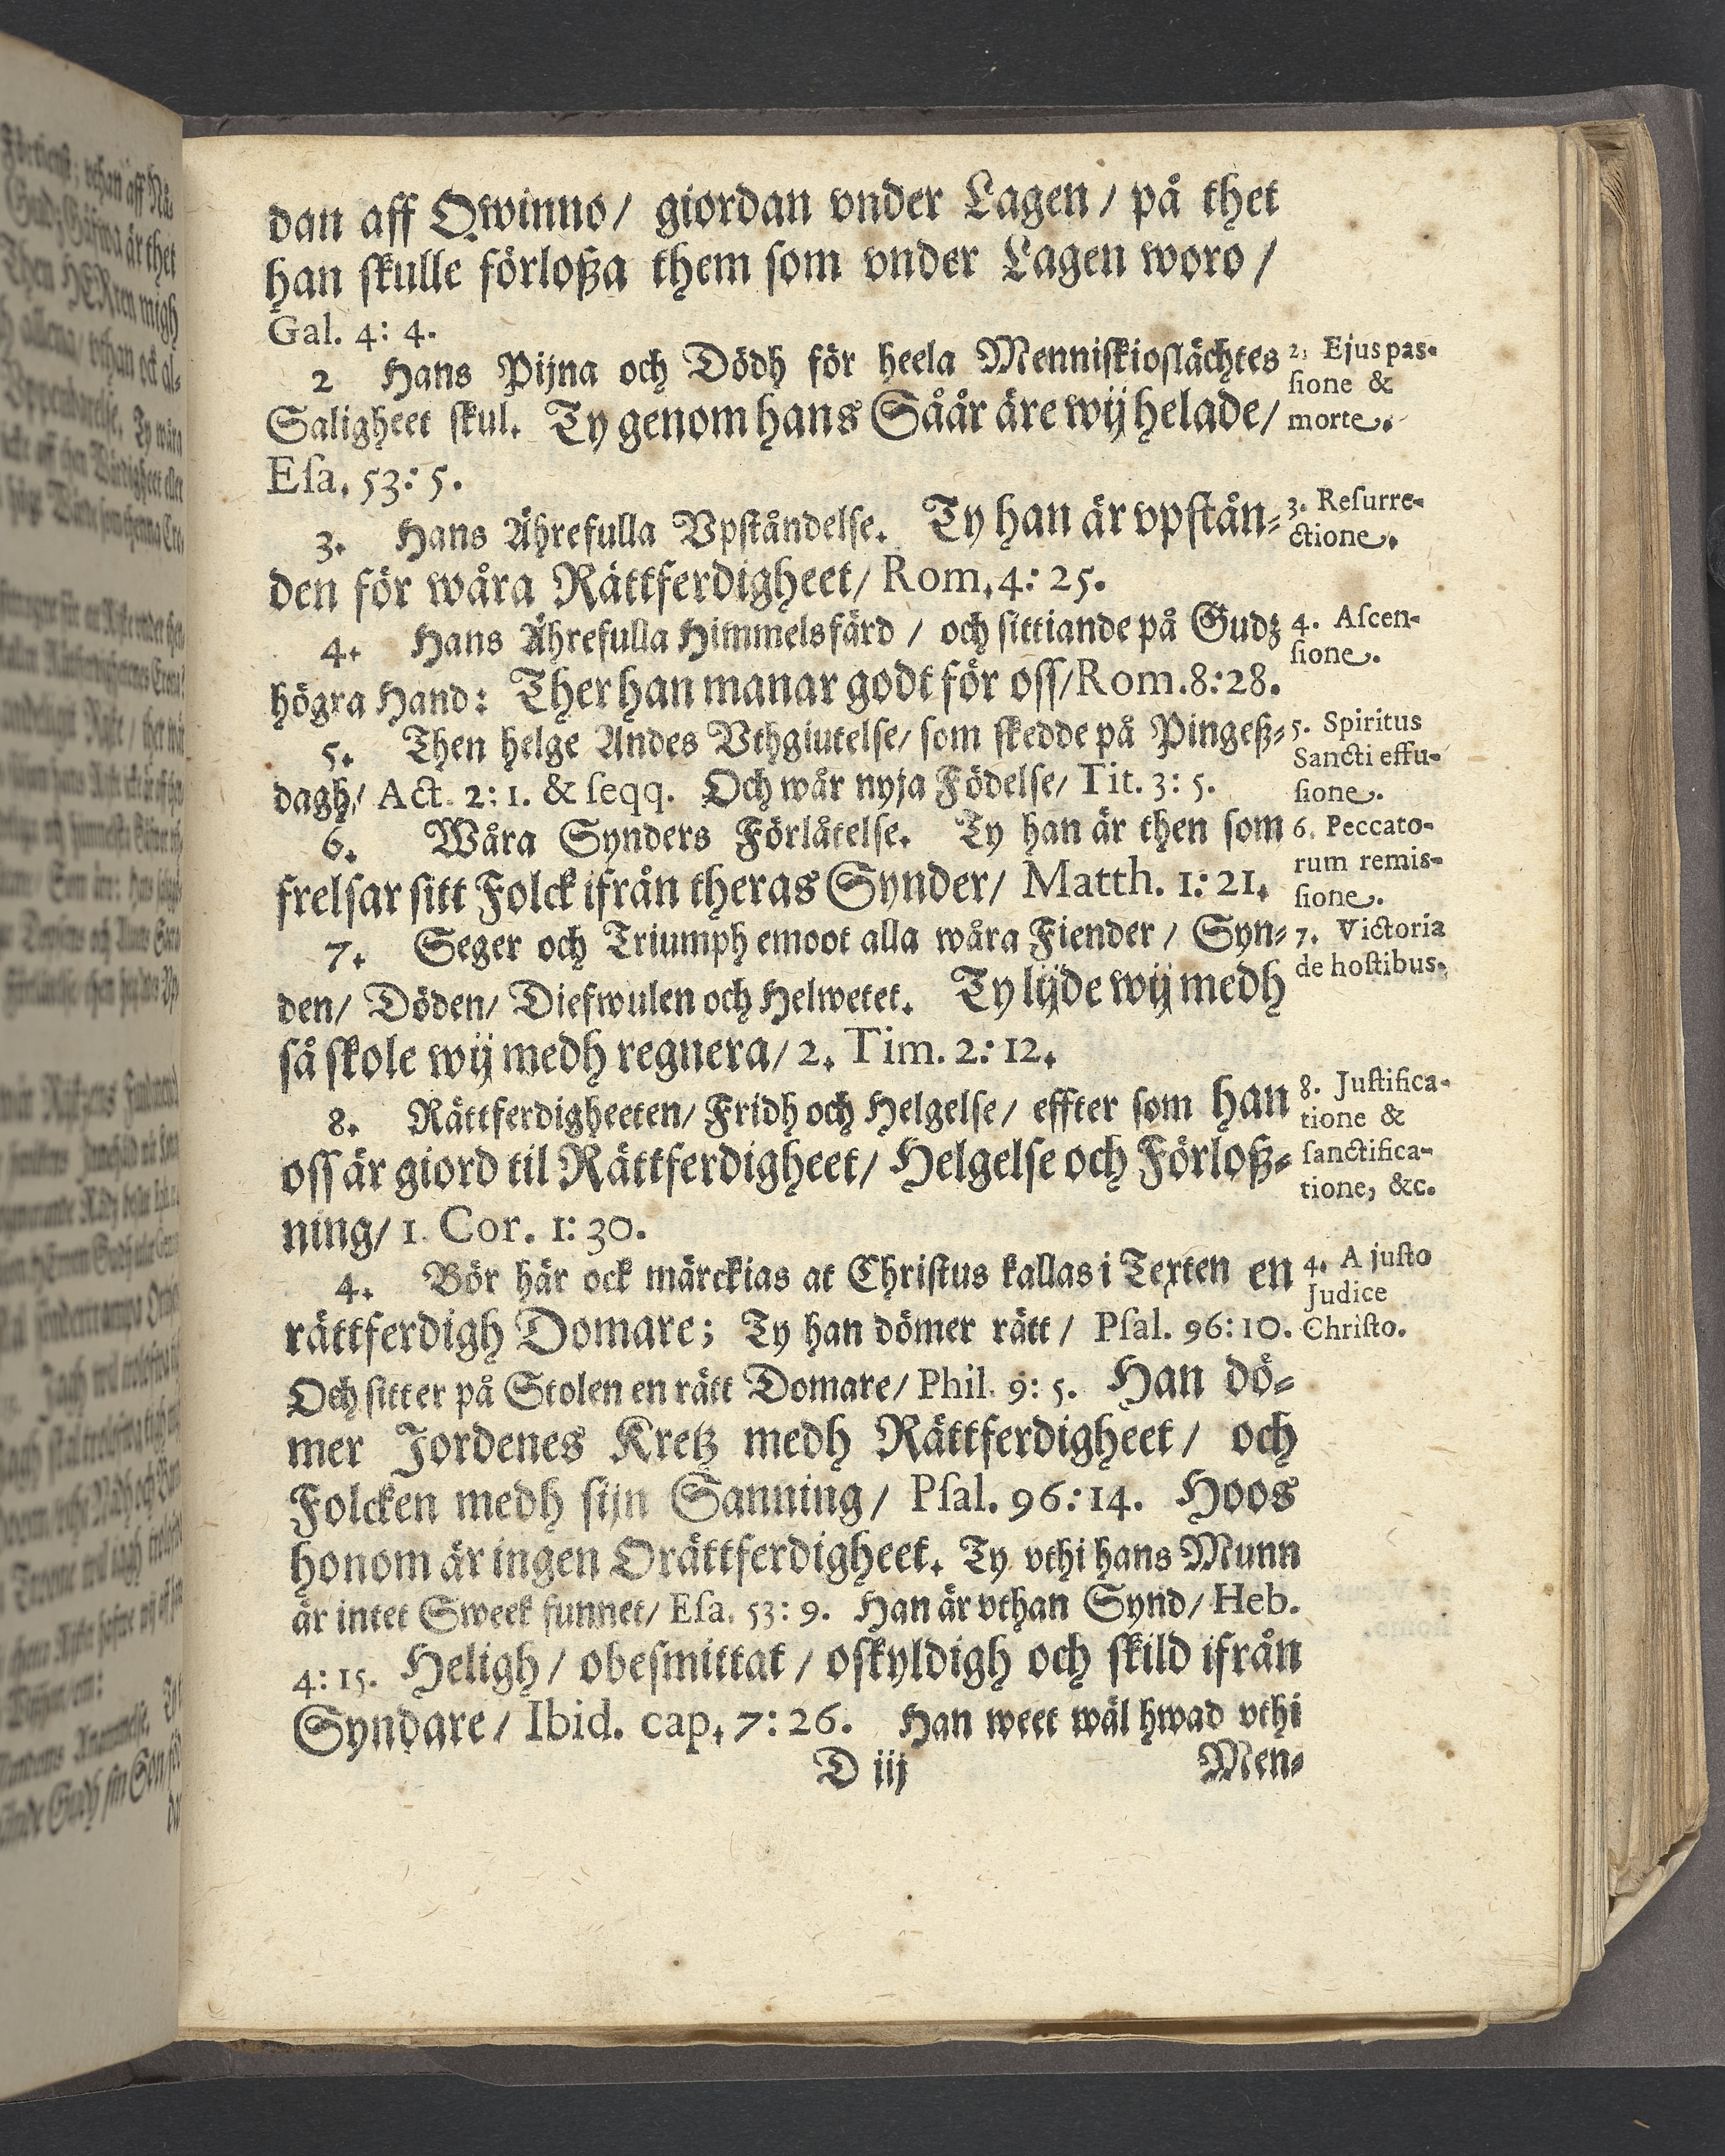 dan aff Qwinno/ giordan vnder Lagen/ på thet
han ſkulle förloßa them som vnder Lagen woro/
Gal. 4: 4.
2 Hans Pijna och Dödh för heela Menniſkioſlächtes
Saligheet ſkul. Ty genom hans Såår äre wij helade/
Eſa. 53: 5.
3. Hans Ährefulla Vpſtåndelſe. Ty han är vpſtån-
den för wåra Rättferdigheet/ Rom. 4: 25.
4. Hans Ährefulla Himmelsfärd / och ſittiande på Gudz
högra Hand: Ther han manar godt för oſſ/ Rom. 8: 28.
5. Then helge Andes Vthgiutelſe/ ſom ſkedde på Pingeß-
dagh/ Act. 2: 1. & ſeqq. Och wår nyja Födelſe/ Tit. 3: 5.
6. Wåra Synders Förlåtelſe. Ty han är then ſom
frelſar ſitt Folck ifrån theras Synder/ Matth. 1: 21.
7. Seger och Triumph emoot alla wåra Fiender / Syn-
den/ Döden/ Diefwulen och Helwetet. Ty lijde wij medh
ſå ſkole wij medh regnera/ 2. Tim. 2: 12.
8. Rättferdigheeten/ Fridh och Helgelſe/ effter ſom han
oſſ är giord til Rättferdigheet/ Helgelſe och Förloß-
ning/ 1. Cor. 1: 30.
4. Bör här ock märckias at Chriſtus kallas i Texten en
rättferdigh Domare; Ty han dömer rätt / Pſal. 96: 10.
Och ſitter på Stolen en rätt Domare/ Phil. 9: 5. Han dö-
mer Jordenes Kretz medh Rättferdigheet/ och
Folcken medh ſijn Sanning/ Pſal. 96: 14. Hoos
honom är ingen Orättferdigheet. Ty vthi hans Munn
är intet Sweek funnet/ Eſa. 53: 9. Han är vthan Synd/ Heb.
4: 15. Heligh/ obeſmittat/ oſkyldigh och ſkild ifrån
Syndare/ Ibid. cap. 7: 26. Han weet wäl hwad vthi
D iij Men-
2. Ejus pas-
ſione &
morte.
3. Reſurre-
ctione.
4. Aſcen-
ſione.
5. Spiritus
Sancti effu-
ſione.
6. Peccato-
rum remis-
ſione.
7. Victoria
de hoſtibus.
8. Juſtifica-
tione &
ſanctifica-
tione, &c.
4. A juſto
Judice
Chriſto.